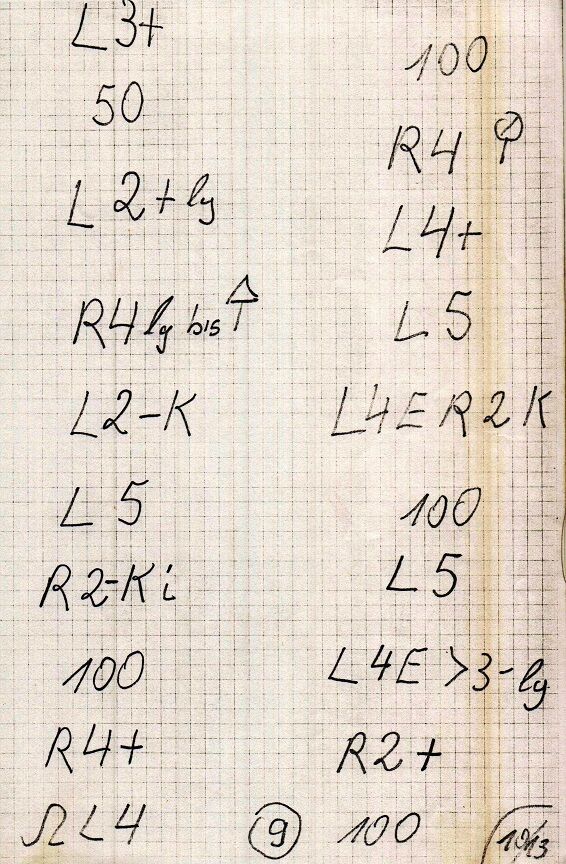 L3+
50
L2+lg
R4 lg bis
L2-K
L5
R2-Ki
100
R4+
ΩL4
100
R4
L4+
L5
L4E R2K
100
L5
L4E >3-lg
R2+
100
9